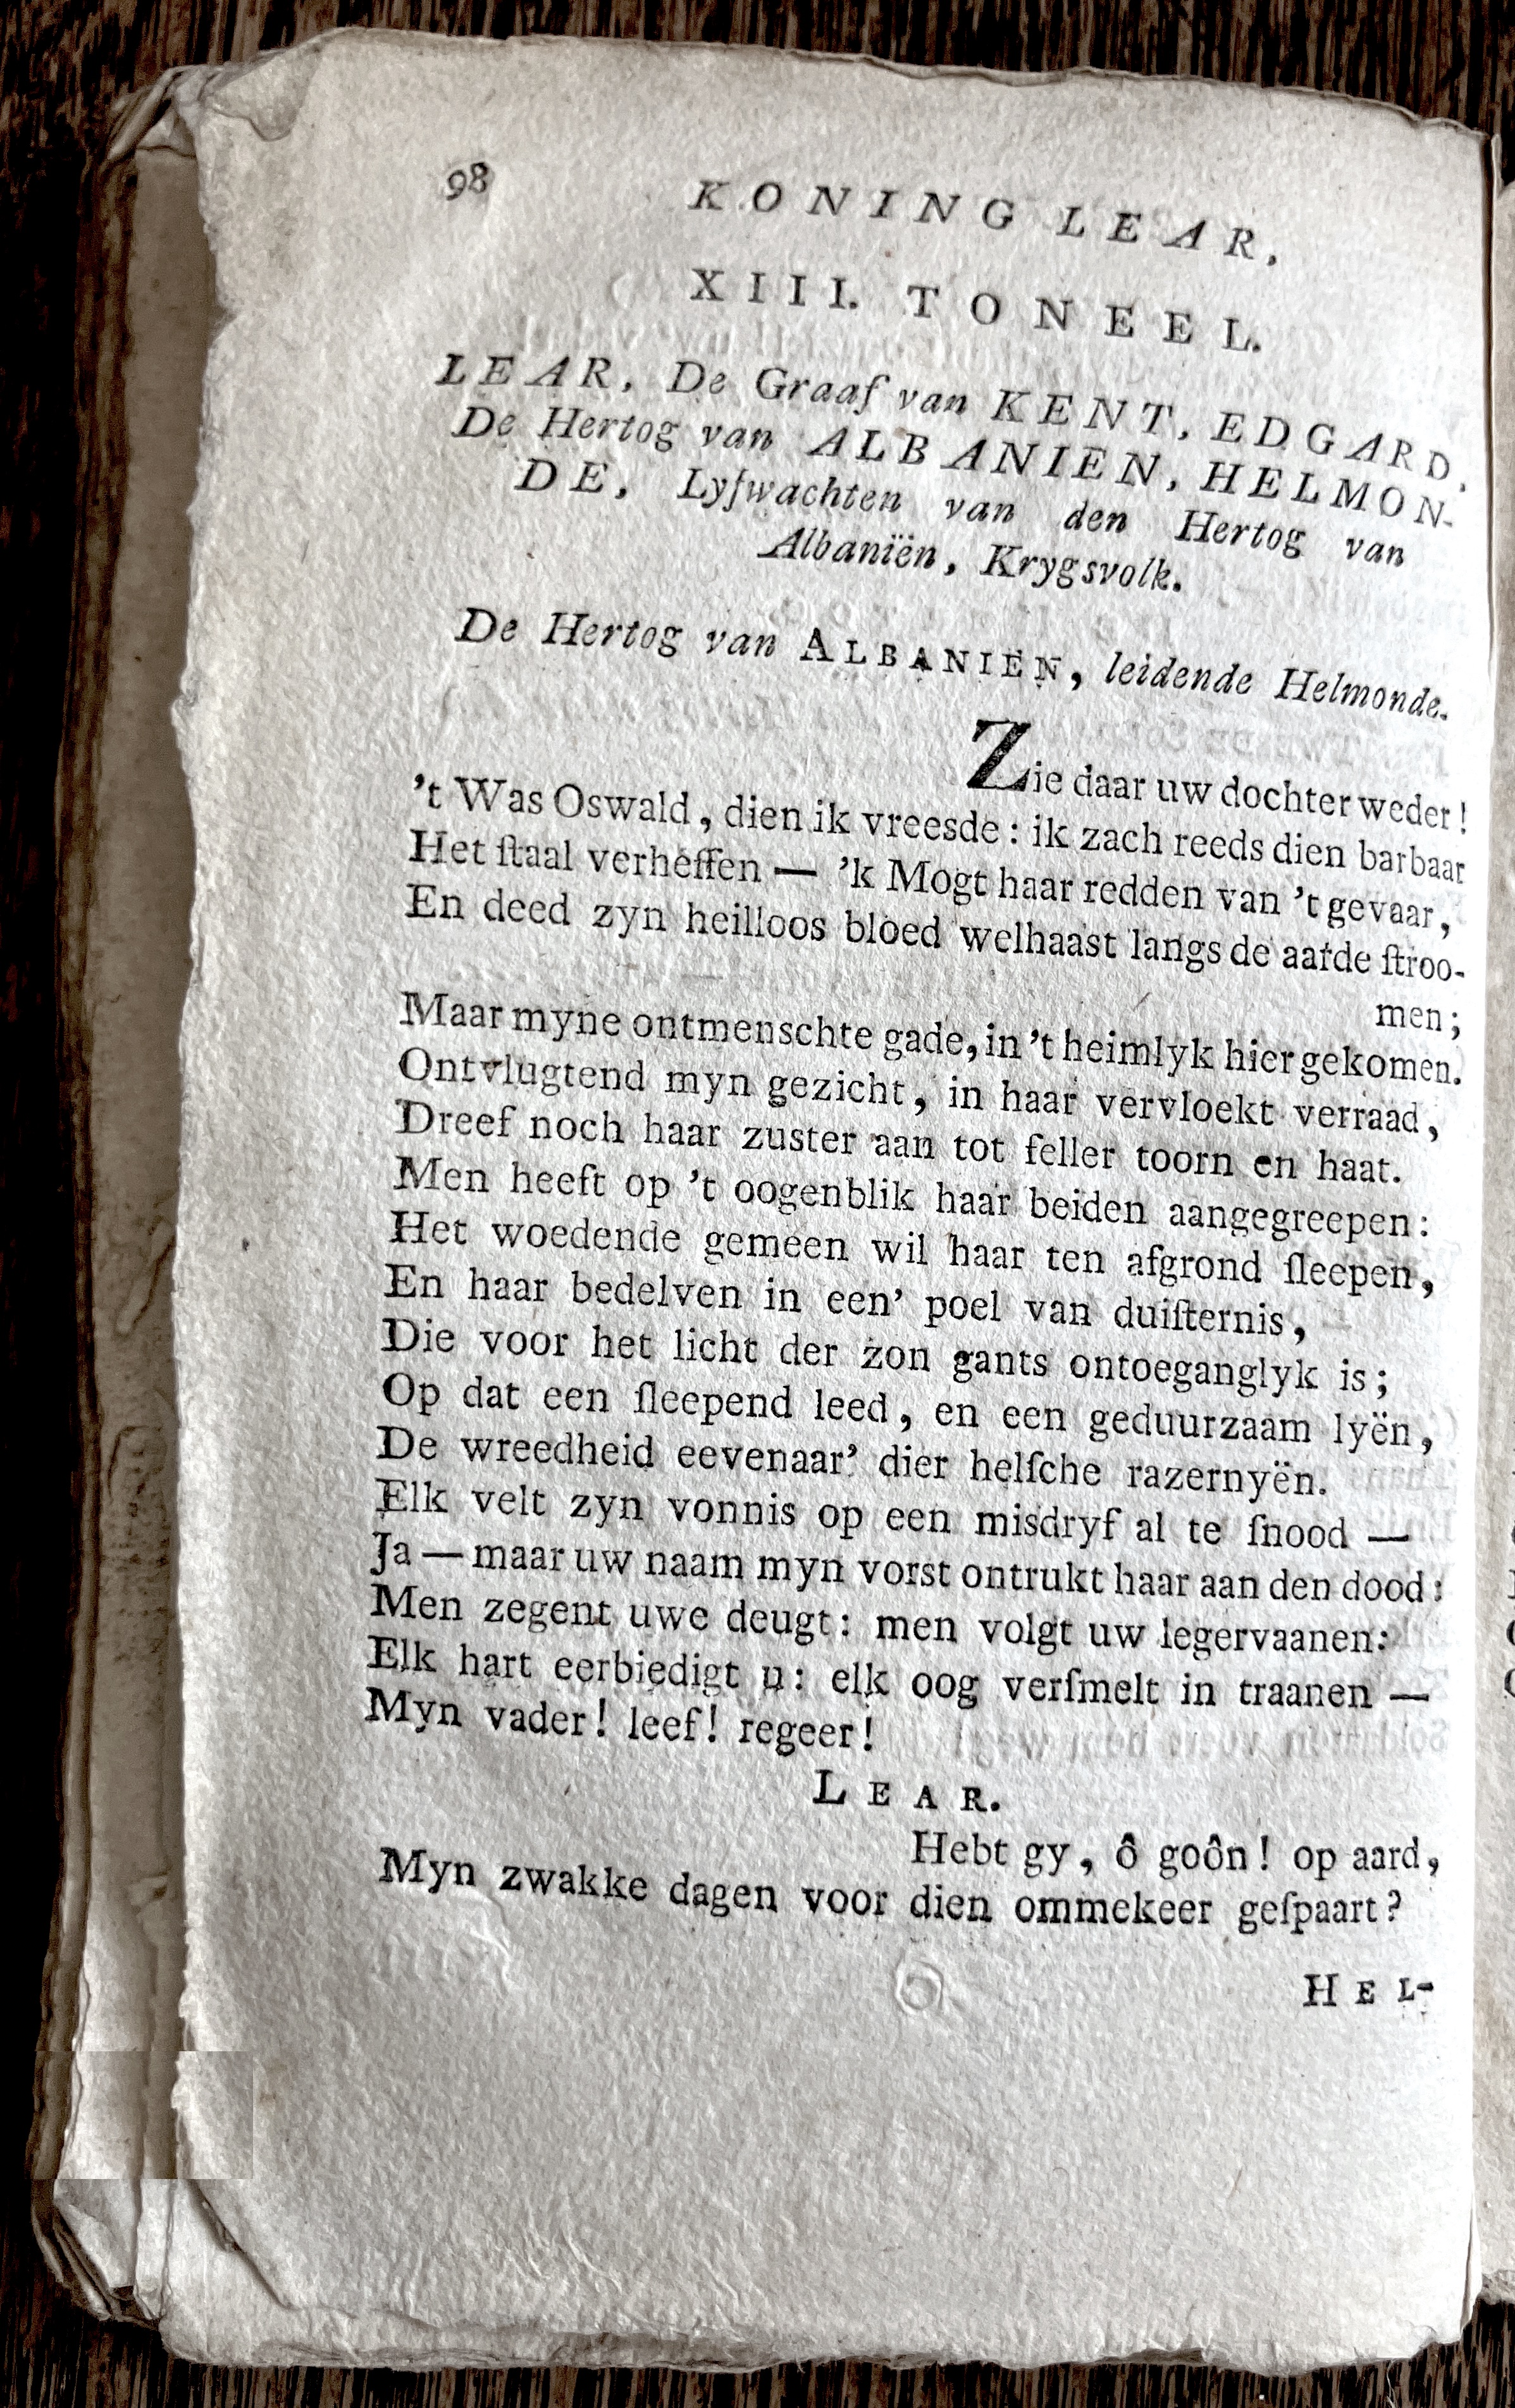 98
KONING LEAR,
XIII. TONEEL.
LEAR, De Graaf van KENT, EDGARD,
De Hertog van ALBANIEN, HELMON-
DE, Lyfwachten van den Hertog van
Albaniën, Krygsvolk.
De Hertog van ALBANIËN, leidende Helmonde.
Zie daar uw dochter weder!
't Was Oswald, dien ik vreesde: ik zach reeds dien barbaar
Het ſtaal verheffen — 'k Mogt haar redden van 't gevaar,
En deed zyn heilloos bloed welhaast langs de aarde ſtroo-
men;
Maar myne ontmenschte gade, in 't heimlyk hier gekomen.
Ontvlugtend myn gezicht, in haar vervloekt verraad,
Dreef noch haar zuster aan tot feller toorn en haat.
Men heeft op 't oogenblik haar beiden aangegreepen:
Het woedende gemeen wil haar ten afgrond ſleepen,
En haar bedelven in een' poel van duiſternis,
Die voor het licht der zon gants ontoeganglyk is;
Op dat een ſleepend leed, en een geduurzaam lyën,
De wreedheid eevenaar' dier helſche razernyën.
Elk velt zyn vonnis op een misdryf al te ſnood —
Ja — maar uw naam myn vorst ontrukt haar aan den dood:
Men zegent uwe deugt: men volgt uw legervaanen:
Elk hart eerbiedigt u: elk oog verſmelt in traanen —
Myn vader! leef! regeer!
LEAR.
Hebt gy, ô goôn! op aard,
Myn zwakke dagen voor dien ommekeer geſpaart?
HEL-